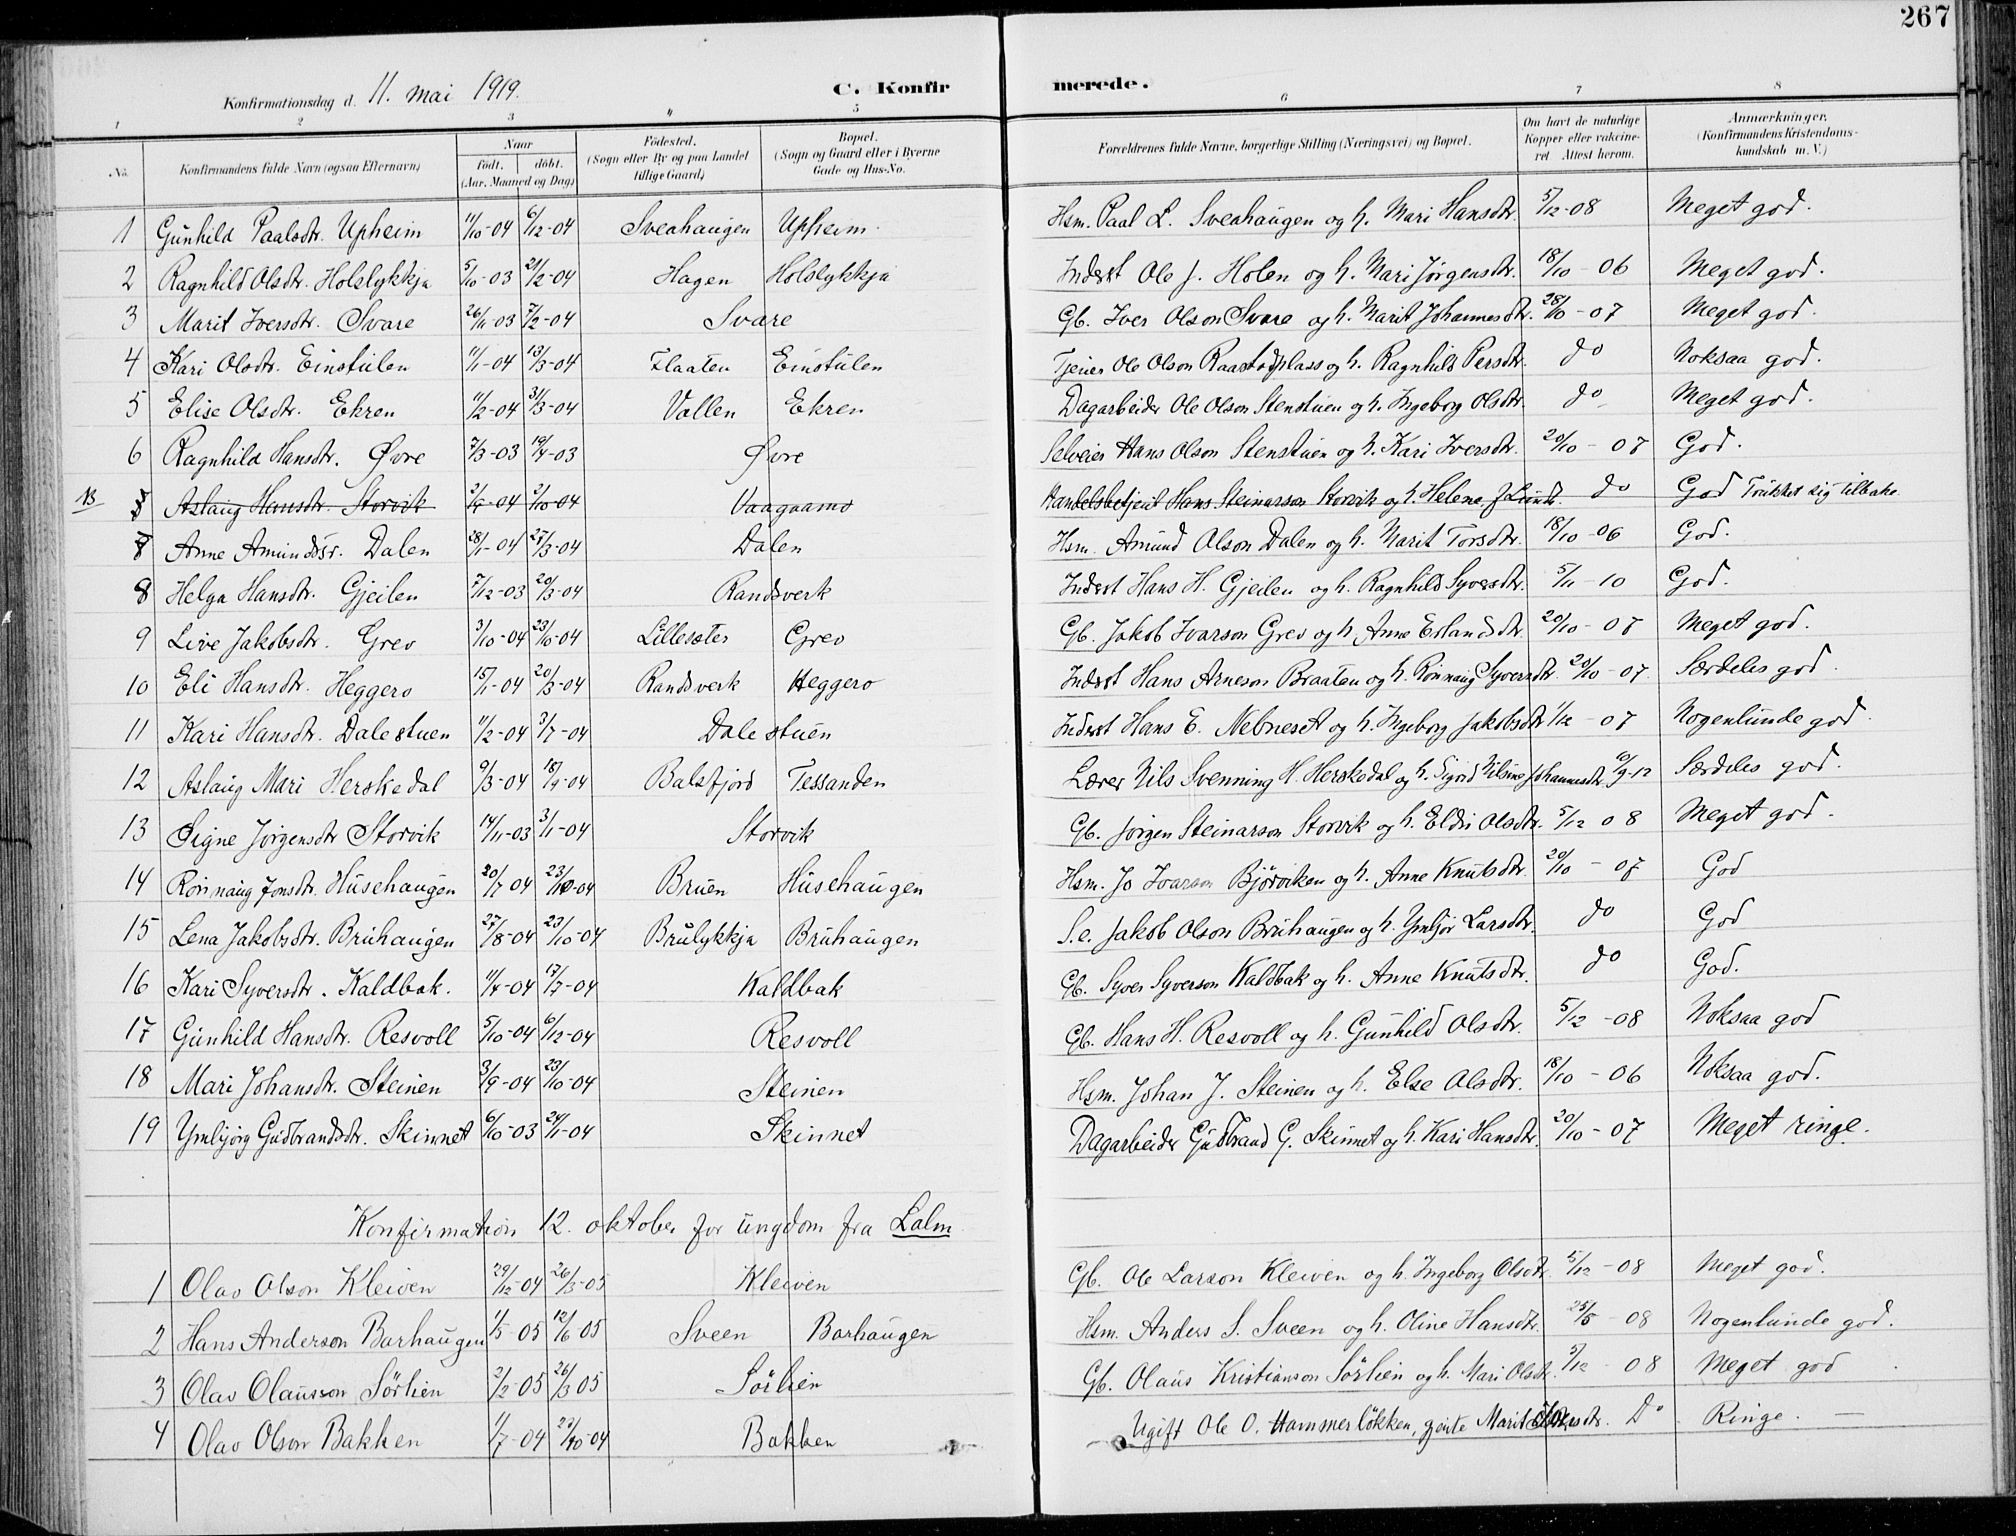 267
Konfirmationsdag d. 11. mai 1919.
C. Konfir merede.
1 2 3 4 5 6 7 8
No. Konfirmandens fulde Navn (ogsaa Efternavn) Naar født. døbt. (Aar, Maaned og Dag) Fødested. (Sogn eller By og paa Landet tillige Gaard) Bopæl. (Sogn og Gaard eller i Byerne Gade og Hus-No. Forældrenes fulde Navne, borgerlige Stilling (Næringsvei) og Bopæl. Om havt de naturlige Kopper eller vakcineret. Attest herom. Anmærkninger. (Konfirmandens Kristendomskundskab m. V.)
1 Gunhild Paalsdtr. Upheim 11/10-04 6/12-04 Sveahaugen Upheim. Hsm. Paal L. Sveahaugen og h. Mari Hansdtr. 5/12-08 Meget god.
2 Ragnhild Olsdtr. Holslykkja 5/10-03 21/2-04 Hagen Holslykkja Inderst Ole J. Holen og h. Mari Jørgensdtr. 18/10-06 Meget god.
3 Marit Iversdtr. Svare 26/11-03 7/2-04 Svare Gb. Iver Olson Svare og h. Marit Johannesdtr. 28/10-07 Meget god.
4 Kari Olsdtr. Einstulen 11/1-04 13/3-04 Flaaten Einstulen Tjener Ole Olson Raastadplass og h. Ragnhild Persdtr. do Noksaa god.
5 Elise Olsdtr. Ekren 11/2-04 31/3-04 Vollen Ekren Dagarbeider Ole Olson Stenstuen og h. Ingeborg Olsdtr. do Meget god.
6 Ragnhild Hansdtr. Øvre 7/3-03 19/4-03 Øvre Selveier Hans Olson Stenstuen og h. Kari Iversdtr. 20/10-07 God.
NB Aslaug Hansdtr. Storvik 2/9-04 2/10-04 Vaagaamo Handelsbetjent Hans Steinarson Storvik og h. Helene J Lunde do God Trukket sig tilbake.
Anne Amundsdtr. Dalen 28/1-04 27/3-04 Dalen Hsm. Amund Olson Dalen og h. Marit Torsdtr. 18/10-06 God.
8 Helga Hansdtr. Gjeilen 7/12-03 20/3-04 Randsverk Inderst Hans H. Gjeilen og h. Ragnhild Syversdtr. 5/11-10 God.
9 Live Jakobsdtr. Grev 3/10-04 23/10-04 Lillesæter Grev Gb. Jakob Ivarson Grev og h. Anne Erlandsdtr. 20/10-07 Meget god.
10 Eli Hansdtr. Heggerø 15/1-04 20/3-04 Randsverk Heggerø Inderst Hans Arneson Braaten og h. Rønnaug Syversdtr. 20/10-07 Særdeles god.
11 Kari Hansdtr. Dalestuen 11/2-04 3/7-04 Dalestuen Inderst Hans E. Nebneset og h. Ingeborg Jakobsdtr 1/12-07 Nogenlunde god.
12 Aslaug Mari Herskedal 9/3-04 18/9-04 Balsfjord Tessanden Lærer Nils Svenning H. Herskedal og h. Sigrid Nilsine Johannesdtr. 10/9-12 Særdeles god.
13 Signe Jørgensdtr Storvik 14/11-03 3/1-04 Storvik Gb. Jørgen Steinarson Storvik og h. Eldri Olsdtr. 5/12 08 Meget god.
14 Rønnaug Jonsdtr. Husehaugen 20/7 04 23/10-04 Bruen Husehaugen Hsm. Jo Ivarson Bjørviken og h. Anne Knutsdtr. 20/10-07 God
15 Lena Jakobsdtr. Bruhaugen 27/8-04 23/10-04 Brulykkja Bruhaugen S.e. Jakob Olson Bruhaugen og h. Ymbjør Larsdtr. do God
16 Kari Syversdtr. Kaldbak. 11/4-04 17/7-04 Kaldbak Gb. Syver Syverson Kaldbak og h. Anne Knutsdtr. do God.
17 Gunhild Hansdtr. Resvoll 5/10-04 6/12-04 Resvoll Gb. Hans H. Resvoll og h. Gunhild Olsdtr. 5/12-08 Noksaa god
18 Mari Johansdtr. Steinen 3/9-04 23/10-04 Steinen Hsm. Johan J. Steinen og h. Else Olsdtr. 18/10-06 Noksaa god.
19 Ymbjørg Gudbrandsdtr. Skinnet 6/10-03 24/1-04 Skinnet Dagarbeider Gudbrand G. Skinnet og h. Kari Hansdtr. 20/10-07 Meget ringe.
Konfirmation 12. oktober for ungdom fra Lalm
1 Olav Olson Kleiven 29/12-04 26/3-05 Kleiven Gb. Ole Larson Kleiven og h. Ingeborg Olsdtr. 5/12-08 Meget god.
2 Hans Anderson Barhaugen 1/5-05 12/6 05 Sveen Barhaugen Hsm. Anders S. Sveen og h. Oline Hansdtr. 25/5-08 Nogenlunde god.
3 Olav Olausson Sørlien 2/2-05 26/3 05 Sørlien Gb. Olaus Kristianson Sørlien og h. Mari Olsdtr. 5/12-08 Meget god
4 Olav Olson Bakken 1/7-04 23/10-04 Bakken Ugift Ole O. Hammerløkken, gjente Marit Do Ringe.